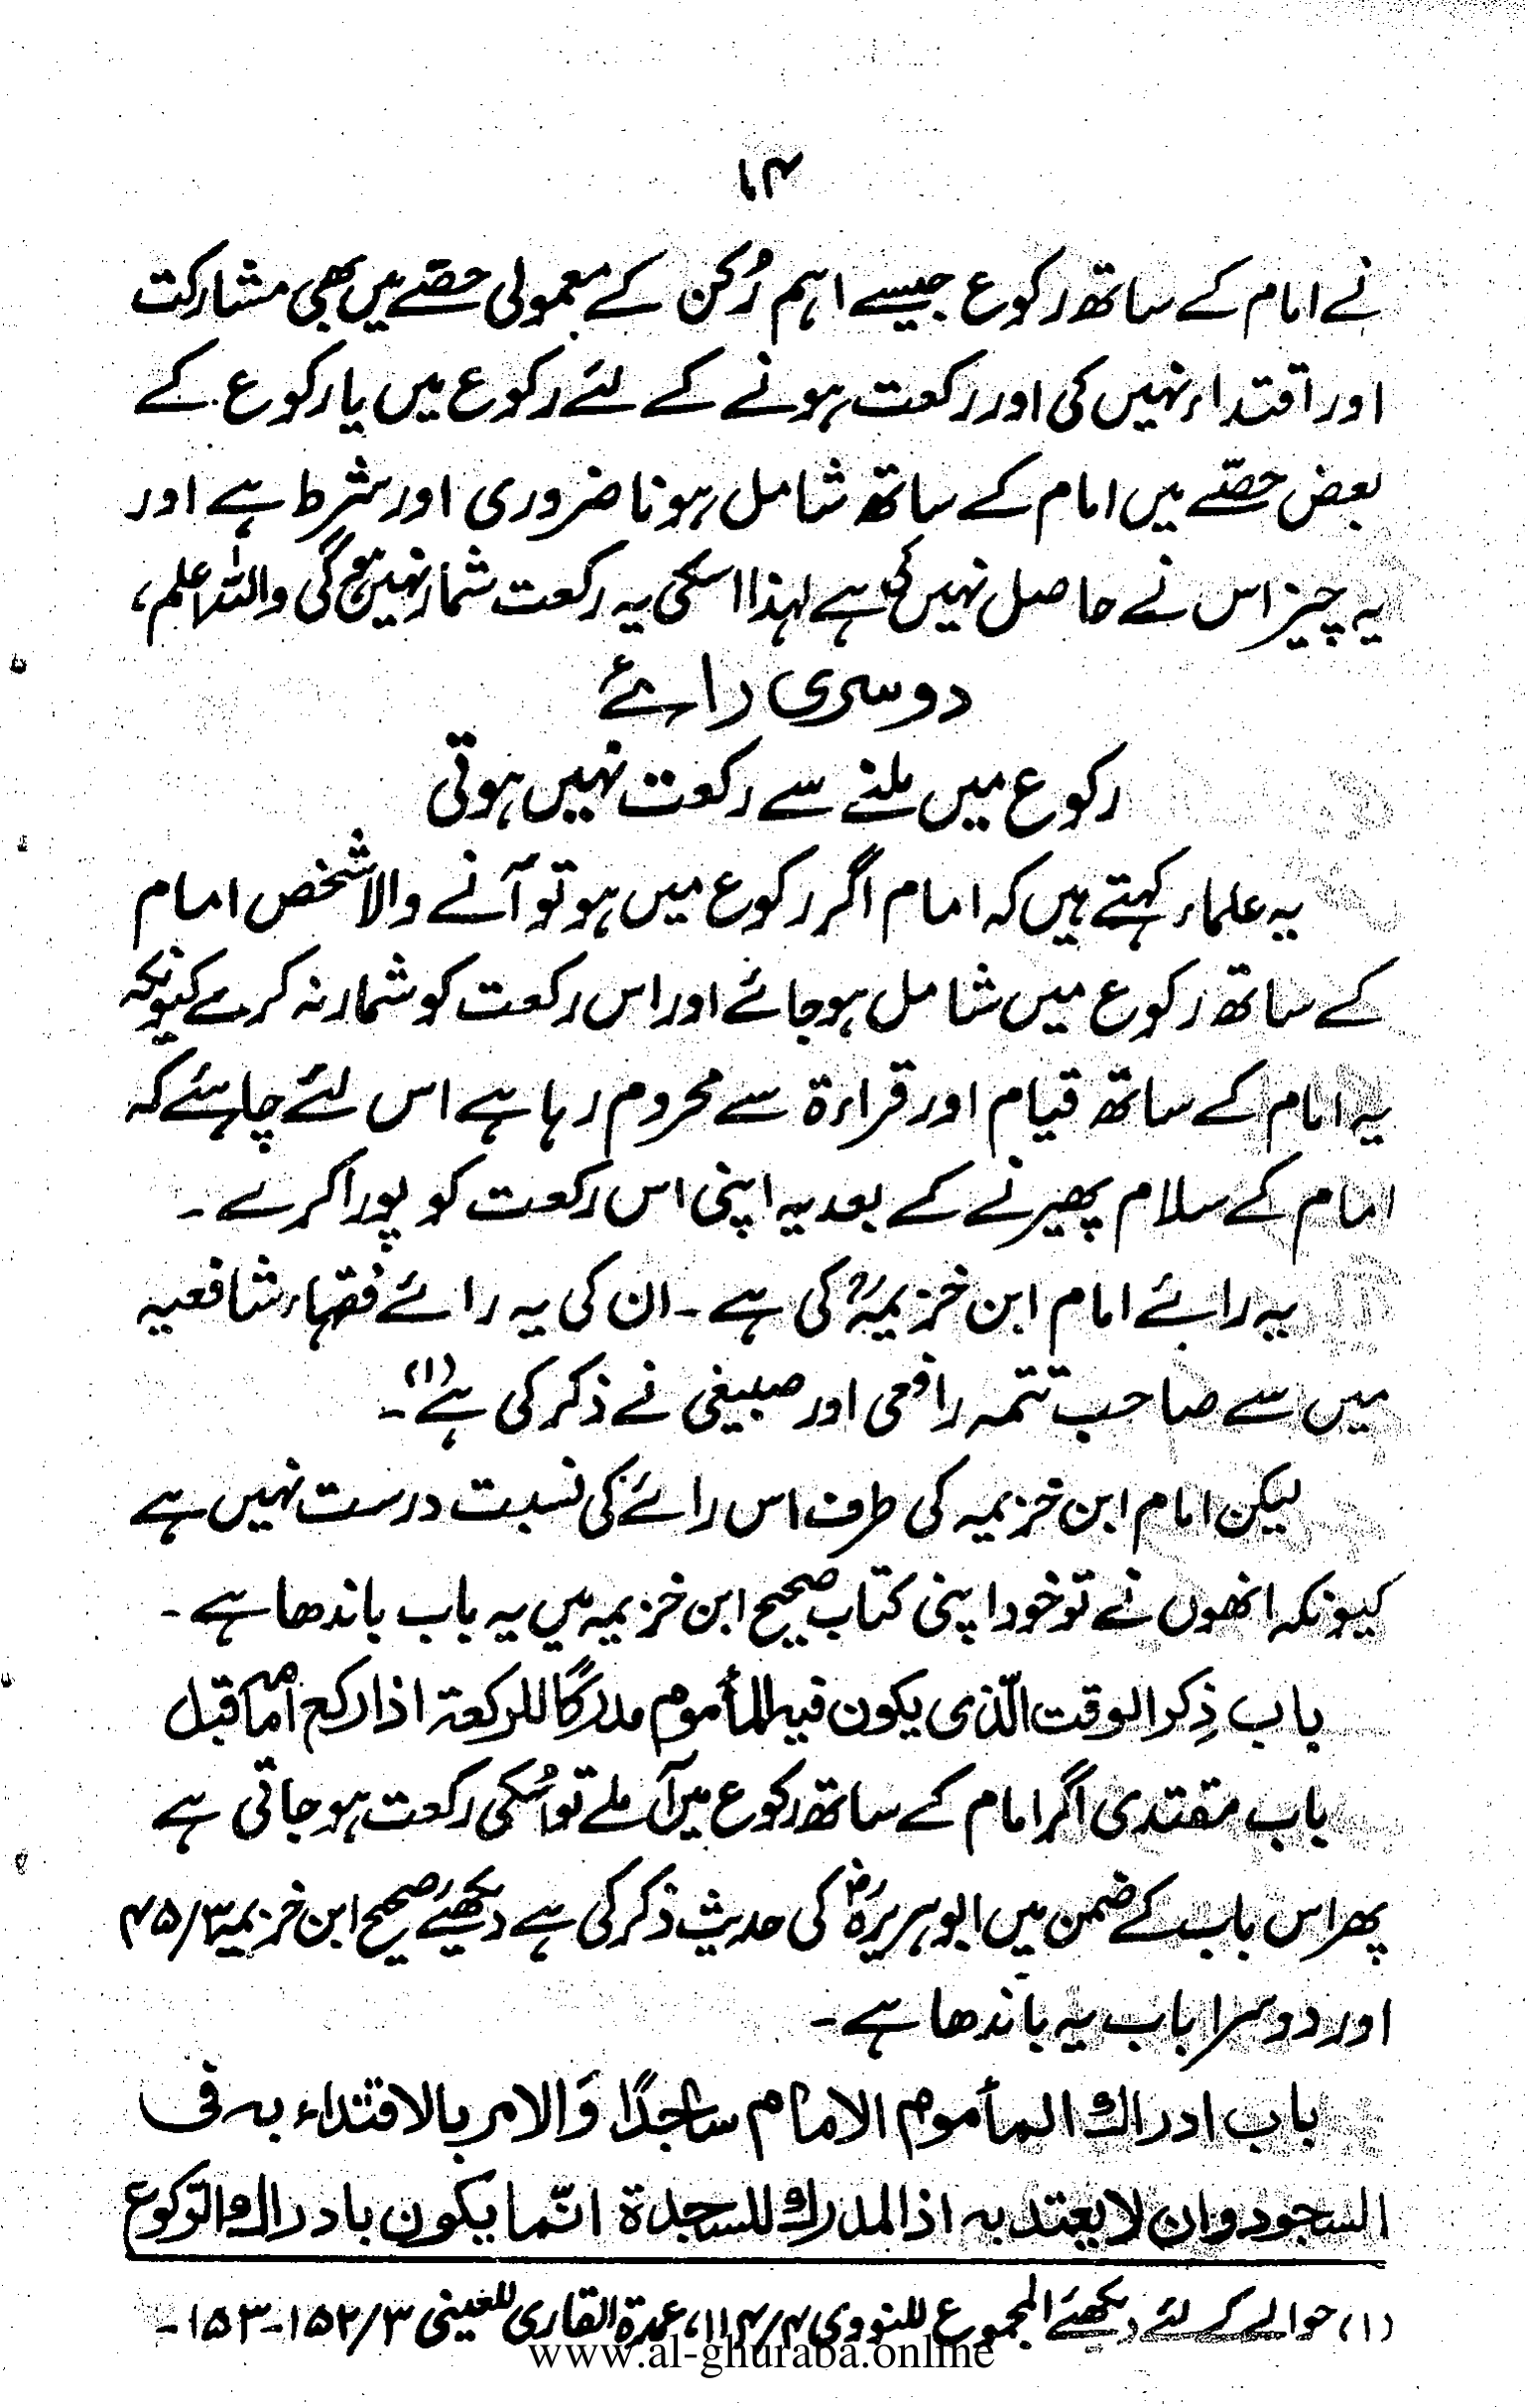 ۱۴
نے امام کے ساتھ رکوع جیسے اہم رُکن کے معمولی حصّے میں بھی مشارکت
اور اقتداء نہیں کی اور رکعت ہونے کے لئے رکوع میں یا رکوع کے
بعض حصّے میں امام کے ساتھ شامل ہونا ضروری اور شرط ہے اور
یہ چیز اس نے حاصل نہیں کی ہے لہذا اسکی یہ رکعت شمار نہیں ہوگی واللہ اعلم،
دوسری رائے
رکوع میں ملنے سے رکعت نہیں ہوتی
یہ علماء کہتے ہیں کہ امام اگر رکوع میں ہو تو آنے والا شخص امام
کے ساتھ رکوع میں شامل ہوجائے اور اس رکعت کو شمار نہ کرے کیونکہ
یہ امام کے ساتھ قیام اور قراءۃ سے محروم رہا ہے اس لئے چاہئے کہ
امام کے سلام پھیرنے کے بعد یہ اپنی اس رکعت کو پورا کرے ۔
یہ رائے امام ابن خزیمہؒ کی ہے ۔ ان کی یہ رائے فقہاء شافعیہ
میں سے صاحب تتمہ رافعی اور صبیغی نے ذکر کی ہے (۱)۔
لیکن امام ابن خزیمہ کی طرف اس رائے کی نسبت درست نہیں ہے
کیونکہ انھوں نے تو خود اپنی کتاب صحیح ابن خزیمہ میں یہ باب باندھا ہے ۔
باب ذِکر الوقت الّذی یکون فیہ المأموم مدرکًا للرکعۃ اذا رکع امامہ قبل
باب مقتدی اگر امام کے ساتھ رکوع میں آملے تو اُسکی رکعت ہوجاتی ہے
پھر اس باب کے ضمن میں ابوہریرہؓ کی حدیث ذکر کی ہے دیکھئے صحیح ابن خزیمہ ۴۵/۳
اور دوسرا باب یہ باندھا ہے ۔
باب ادراك المأموم الامام ساجدًا وَالامر بالاقتداء بہ فی
السجود وان لا یعتد بہ اذ المدرك للسجدۃ انّما یکون بادراك الرّکوع
(۱) حوالے کے لئے دیکھئے المجموع للنووی ۱۱۴/۴، عمدۃ القاری للعینی ۱۵۲/۳-۱۵۳ ۔
www.al-ghuraba.online